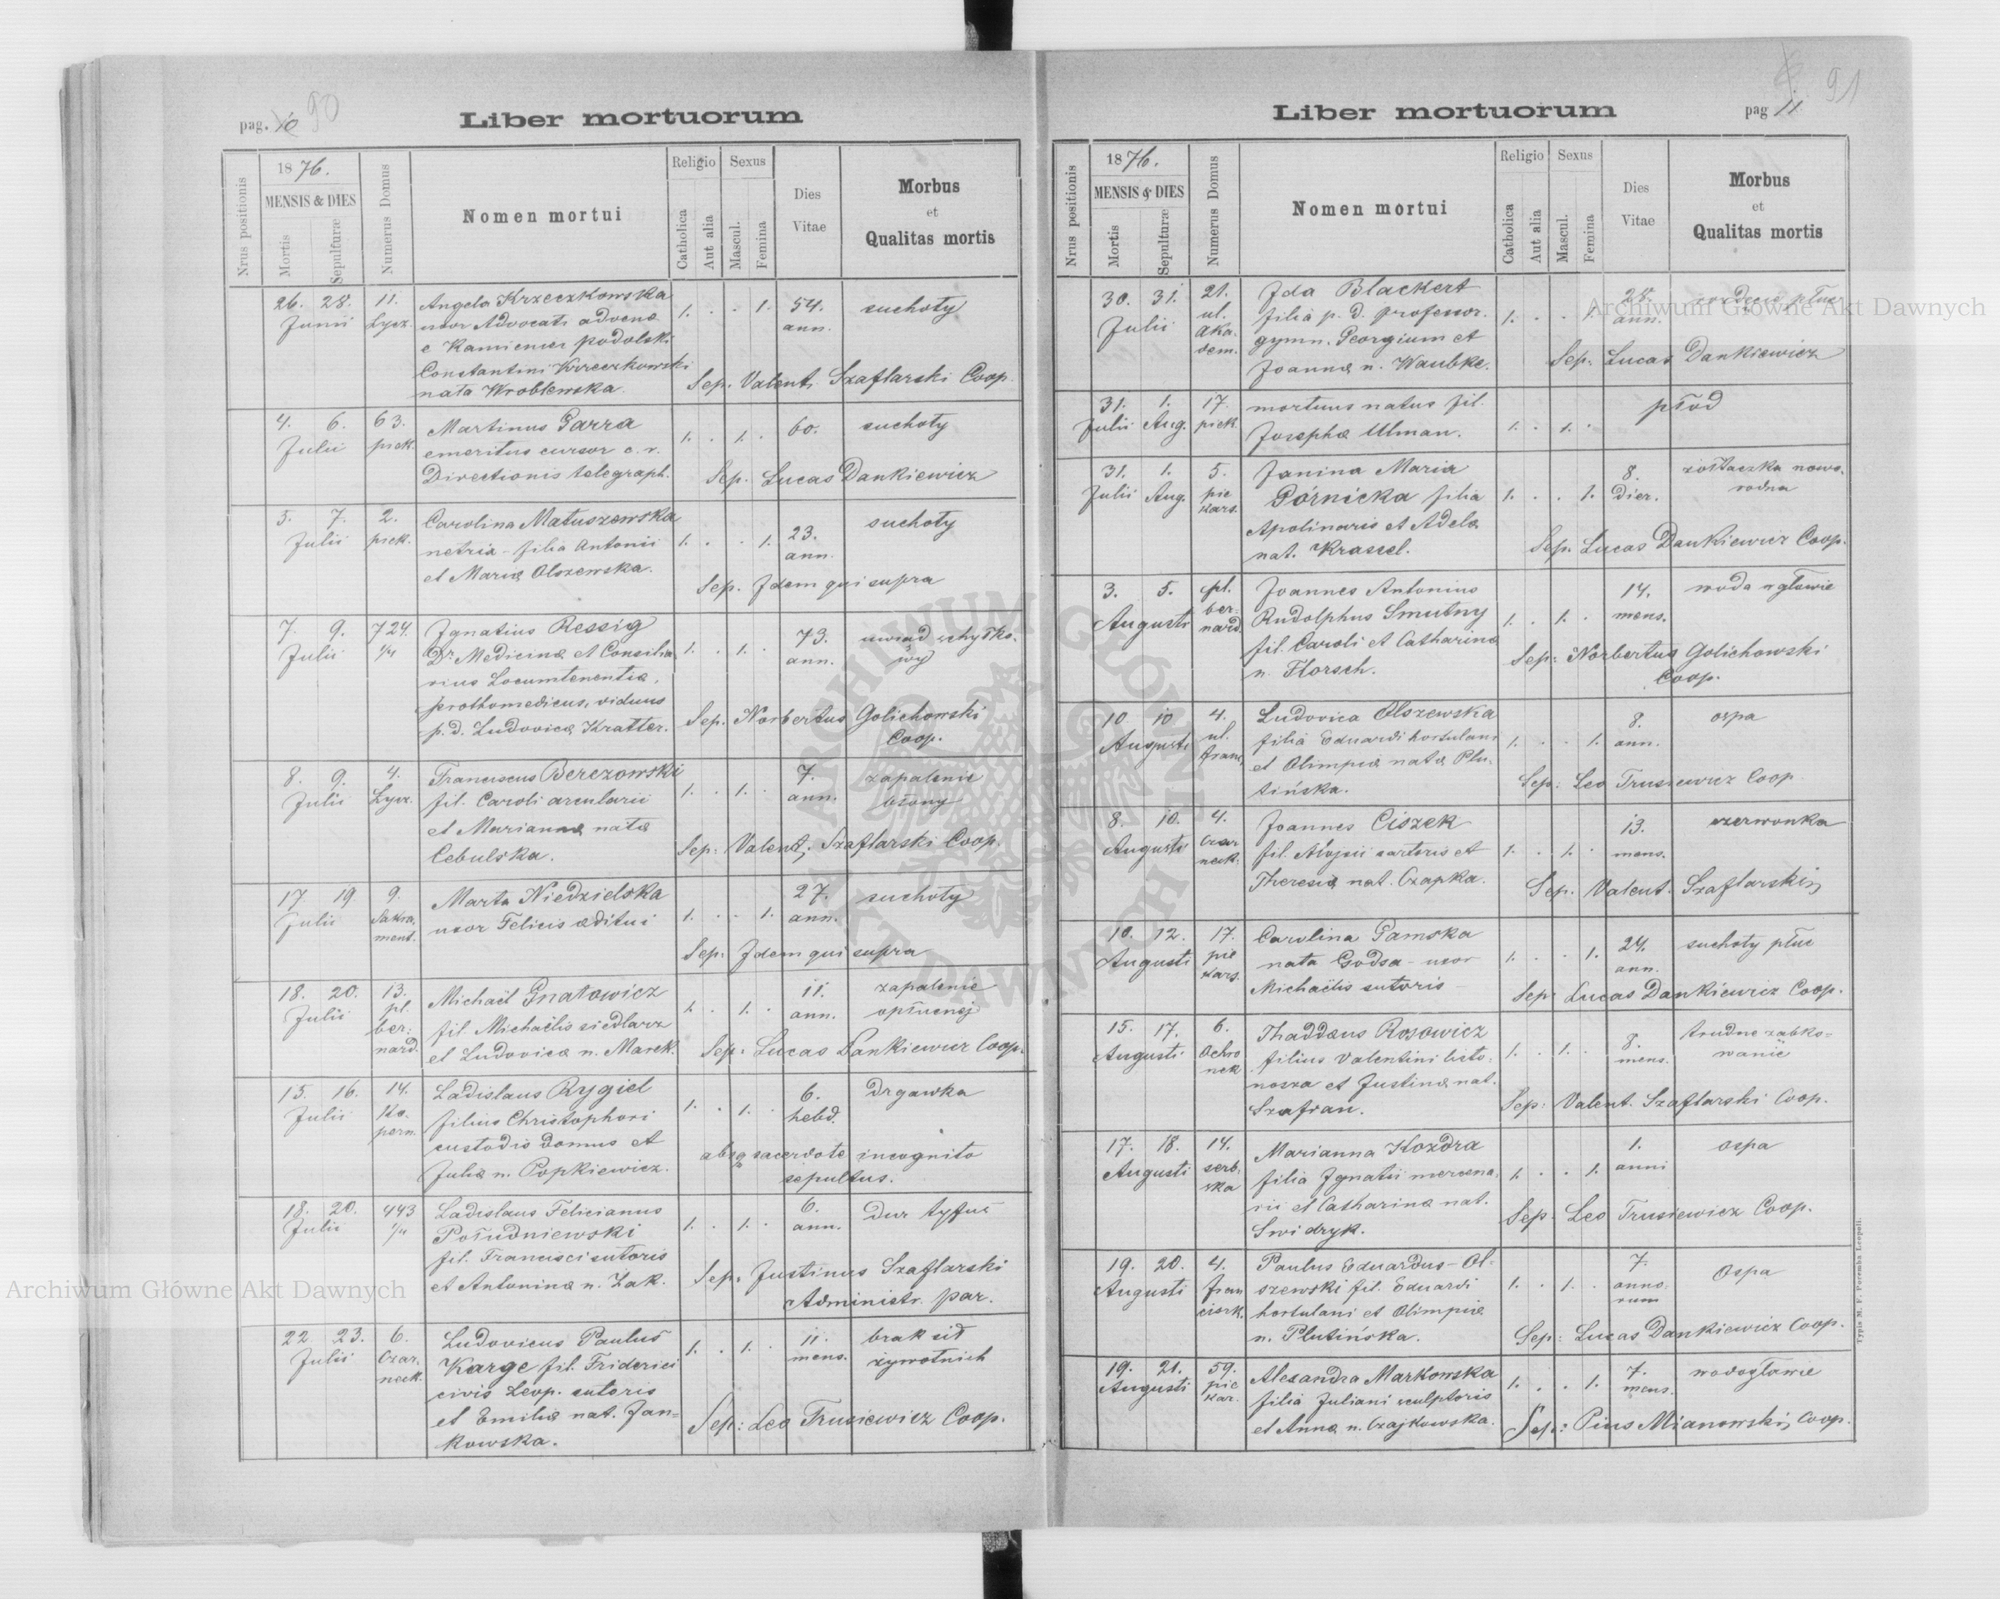 pag. 10 90
Liber mortuorum
Nrus positionis
1876.
MENSIS & DIES
Mortis
Sepulturæ
Numerus Domus
Nomen mortui
Religio
Catholica
Aut alia
Sexus
Mascul.
Femina
Dies
Vitae
Morbus
et
Qualitas mortis
26. 28. 11. Angela Krzeczkowska 1. . . 1. 54. suchoty
Junii Lycz. uxor Advocati advenæ ann.
e Kamieniec podolski
Constantini Krzeczkowski
nata Wroblewska. Sep. Valent. Szaflarski Coop.
4. 6. 63. Martinus Garra 1. . 1. . 60. suchoty
Julii piek. emeritus cursor c. r.
Directionis telegraph. Sep. Lucas Dankiewicz
5. 7. 2. Carolina Matuszewska 1. . . 1. 23. suchoty
Julii piek. netria - filia Antonii ann.
et Mariæ Olszewska. Sep. Idem qui supra
7. 9. 724. Ignatius Ressig 1. . 1. . 73. uwiąd schyłko-
Julii 1/4 Dr Medicinæ et Consilia ann. wy
rius Locumtenentiæ,
prothomedicus, viduus
p. d. Ludovicæ Kratter. Sep. Norbertus Golichowski
Coop.
8. 9. 4. Franciscus Berezowski 1. . 1. . 7. zapalenie
Julii Lycz. fil. Caroli arcularii ann. błony
et Mariannæ natæ
Cebulska. Sep: Valent. Szaflarski Coop.
17. 19 9. Marta Niedzielska 1. . . 1. 27. suchoty
Julii Sakra. uxor Felicis æditui ann.
ment. Sep: Idem qui supra
18. 20. 13. Michaël Gnatowicz 1. . 1. . 11. zapalenie
Julii pl. fil. Michaëlis siedlarz ann. opłucnej
ber: et Ludovicæ n. Marek. Sep: Lucas Dankiewicz Coop.
nard.
15. 16. 14. Ladislaus Rygiel 1. . 1. . 6. Drgawka
Julii Ko. filius Christophori hebd.
pern. custodis domus et absq sacerdote incognito
Juliæ n. Popkiewicz. sepultus.
18. 20. 443 Ladislaus Felicianus 1. . 1. . 6. Dur tyfus
Julii 1/4 Południewski ann.
fil. Francisci sutoris
et Antoninæ n. Żak. Sep. Justinus Szaflarski
Administr. par.
22 23. 6. Ludovicus Paulus 1. . 1. . 11. brak sił
Julii Czar. Karge fil. Friderici mens. żywotnich
neck. civis Leop. sutoris
et Emiliæ nat. Jan= Sep: Leo Trusiewicz Coop.
kowska.
pag 11 91
Liber mortuorum
Nrus positionis
1876.
MENSIS & DIES
Mortis
Sepulturæ
Numerus Domus
Nomen mortui
Religio
Catholica
Aut alia
Sexus
Mascul.
Femina
Dies
Vitae
Morbus
et
Qualitas mortis
30. 31. 21. Ida Blackert 1. . . 1.
Julii ul. filia p. d. professor. ann.
aka. gymn. Georgium et
dem. Joannæ n. Waubke. Sep: Lucas Dankiewicz
31. 1. 17. mortuus natus fil. 1. . 1. . płod
Julii Aug. piek. Josephæ Ulman.
31. 1. 5. Janina Maria 1. . . 1. 8. żółtaczka nowo.
Julii Aug. pie Górnicka filia dier. rodna
kars. Apolinaris et Adelæ
nat. Krassel. Sep. Lucas Dankiewicz Coop.
3. 5. pl. Joannes Antonius 1. . 1. . 14. woda w głowie
Augusti ber- Rudolphus Smutny mens.
nard. fil. Caroli et Catharinæ
n. Florsch. Sep: Norbertus Golichowski
Coop.
10. 10 4. Ludovica Olszewska 1. . . 1. 8. ospa
Augusti ul. filia Eduardi hortulani ann.
franc. et Olimpiæ natæ Plu-
tińska. Sep: Leo Trusiewicz Coop.
8. 10. 4. Joannes Ciszek 1. . 1. . 13. czerwonka
Augusti Czar fil. Alojsii sartoris et mens.
neck. Theresiæ nat. Czapka. Sep. Valent. Szaflarski
10. 12. 17. Carolina Pamska 1. . . 1. 24. suchoty płuc
Augusti pie nata Godsa - uxor ann.
kars. Michaëlis sutoris - Sep: Lucas Dankiewicz Coop.
15. 17. 6. Thaddæus Rosowicz 1. . 1. . 8. trudne ząbko=
Augusti Ochro filius Valentini listo= mens. wanie
nek nosza et Justinæ nat.
Szafran. Sep: Valent. Szaflarski Coop.
17. 18. 14. Marianna Kozdra 1. . . 1. 1. ospa
Augusti serb. filia Ignatii mercena. anni
ska rii et Catharinæ nat.
Swidryk. Sep. Leo Trusiewicz Coop.
19. 20. 4. Paulus Eduardus - Ol- 1. . 1. . 7. Ospa
Augusti fran szewski fil. Eduardi anno.
cisck. hortulani et Olimpiæ rum
n. Plutińska. Sep: Lucas Dankiewicz Coop.
19. 21. 59. Alexandra Markowska 1. . . 1. 7. wodogłowie
Augusti pie filia Juliani sculptoris mens.
kar. et Annæ n. Czajkowska. Sep: Pius Mianowski, Coop.
Typis M. F. Poremba Leopoli.
Archiwum Główne Akt Dawnych
Archiwum Główne Akt Dawnych
ARCHIWUM GŁÓWNE AKT DAWNYCH